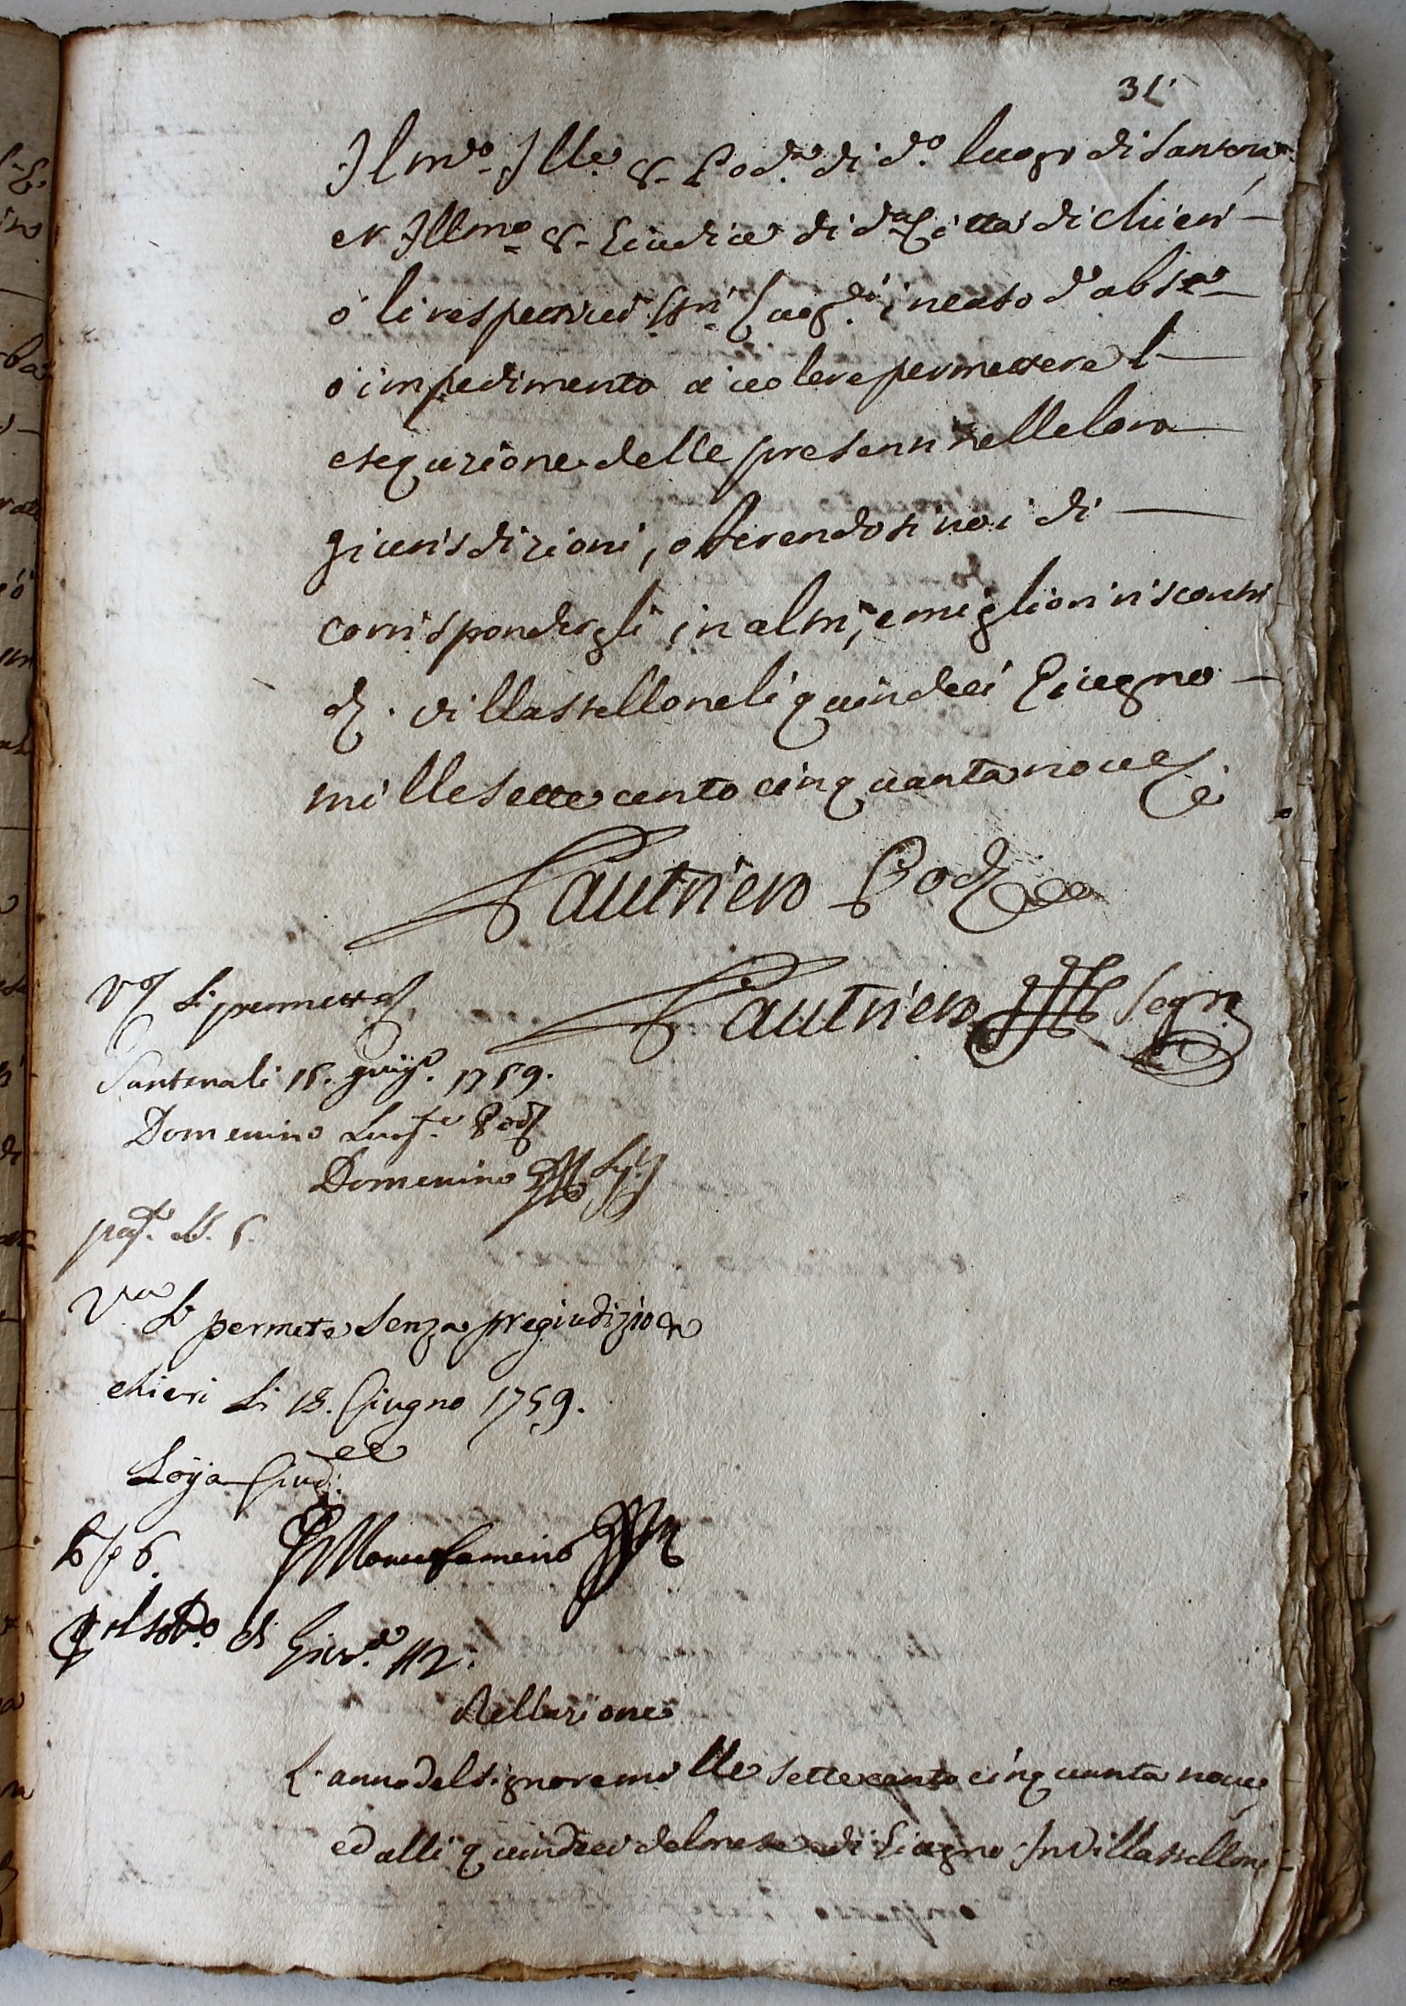 31
Il m.to Ill.e S.r Pod.à di d.o luogo di Santena
et Ill.mo S.r Giudice di d.a Città di Chieri
ò li respettivi SS.ri Luog.ti in caso d'abs.a
o impedimento a voler permettere l'
esequzione delle presenti nelle loro
giurisdizioni, offerendosi noi di
corrispondergli in altri, e migliori riscontri
D. Villastellone li quindeci Giugno
mille sette cento cinquanta nove
Gautiero Pod.
Gautiero Segr.
V. Si permette
Santena li 16. giug.o 1759.
Domenino Luog.te Pod.
Domenino
pag. 6.
V.a Si permette senza pregiudizio
chieri li 18. Giugno 1759.
Loya Giud.ce
6.
di Giur.e 112:
Rellazione
L'anno del signore mille sette cento cinquanta nove
ed alli quindeci del mese di Giugno In Villastellone